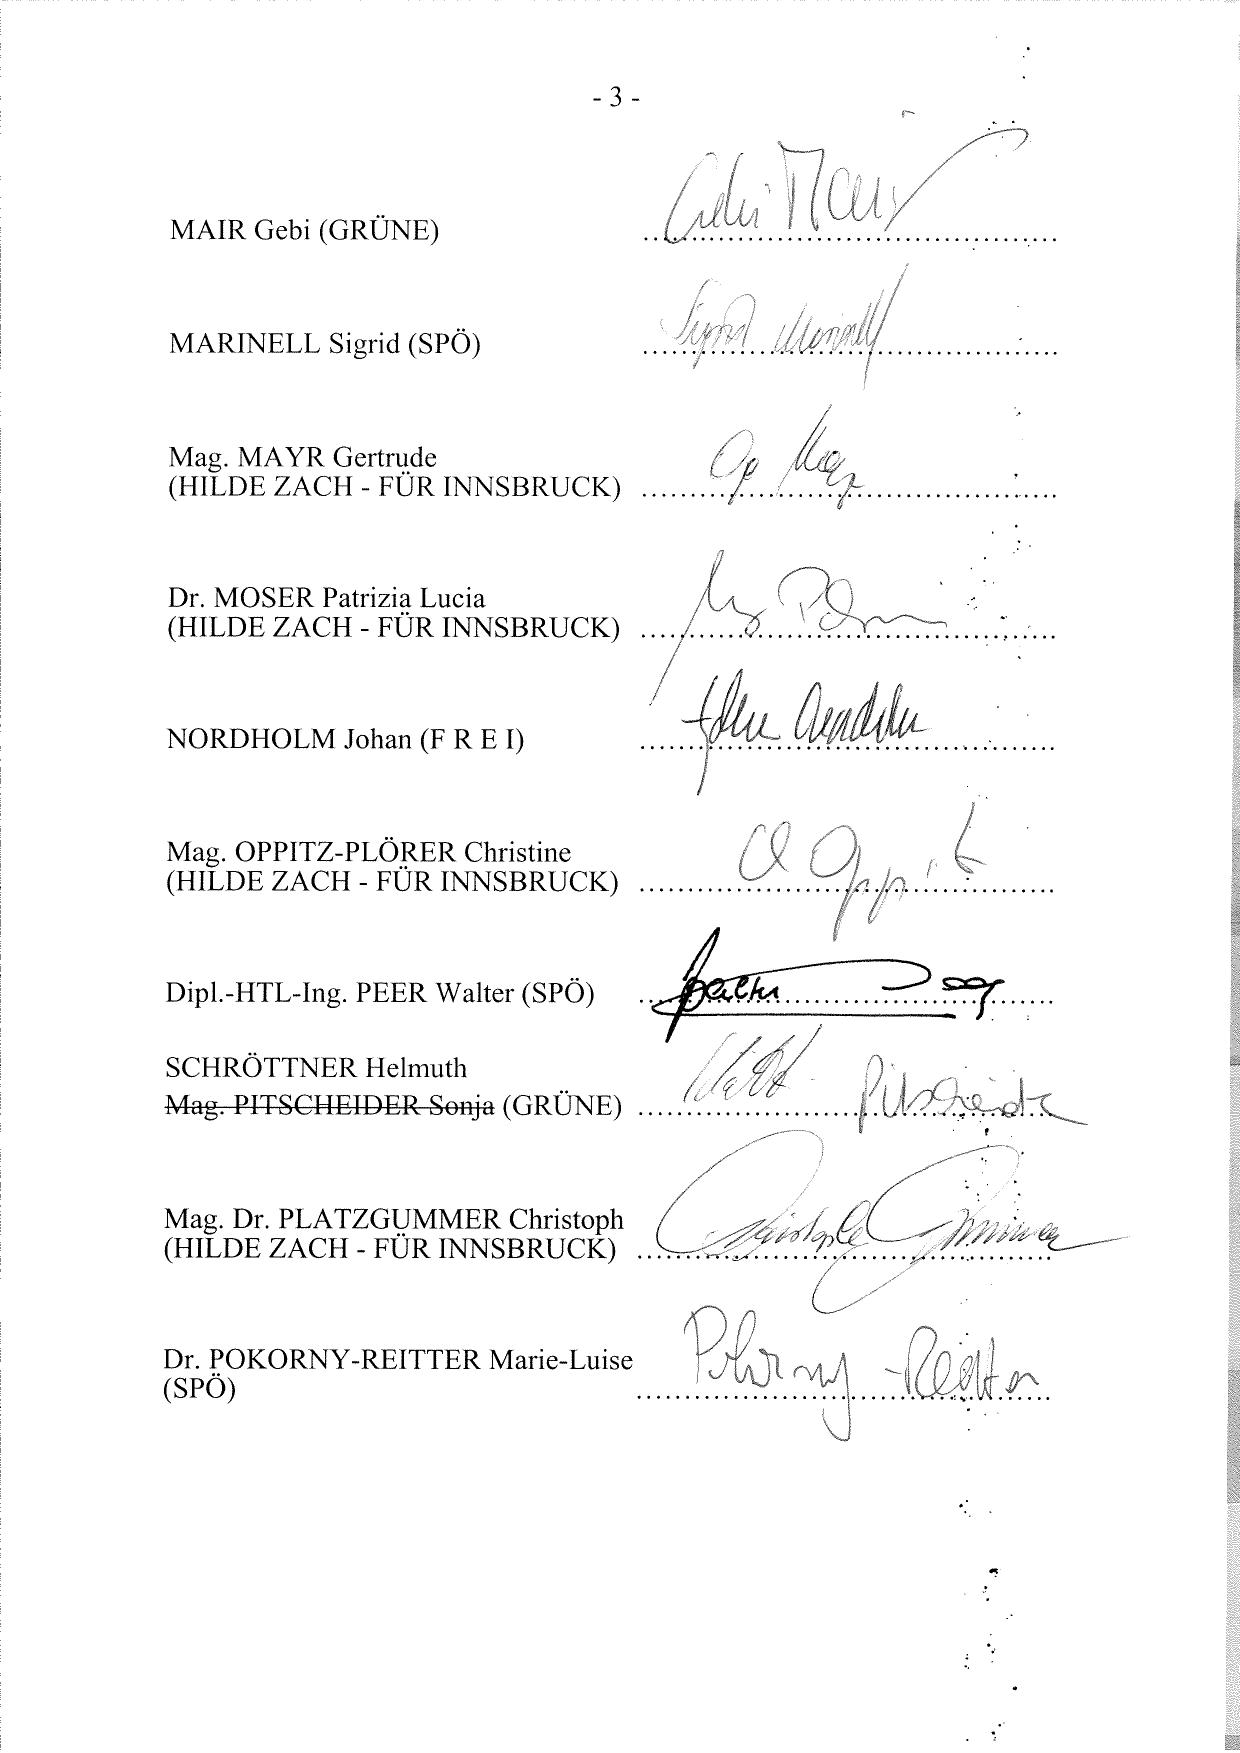 - 3 -
MAIR Gebi (GRÜNE) ........ Gebi Mair
MARINELL Sigrid (SPÖ) ........ Sigrid Marinell
Mag. MAYR Gertrude
(HILDE ZACH - FÜR INNSBRUCK) ........
Dr. MOSER Patrizia Lucia
(HILDE ZACH - FÜR INNSBRUCK) ........
NORDHOLM Johan (F R E I) ........
Mag. OPPITZ-PLÖRER Christine
(HILDE ZACH - FÜR INNSBRUCK) ........
Dipl.-HTL-Ing. PEER Walter (SPÖ) ........
SCHRÖTTNER Helmuth
Mag. PITSCHEIDER Sonja (GRÜNE) ........
Mag. Dr. PLATZGUMMER Christoph
(HILDE ZACH - FÜR INNSBRUCK) ........
Dr. POKORNY-REITTER Marie-Luise
(SPÖ) ........ Pokorny-Reitter